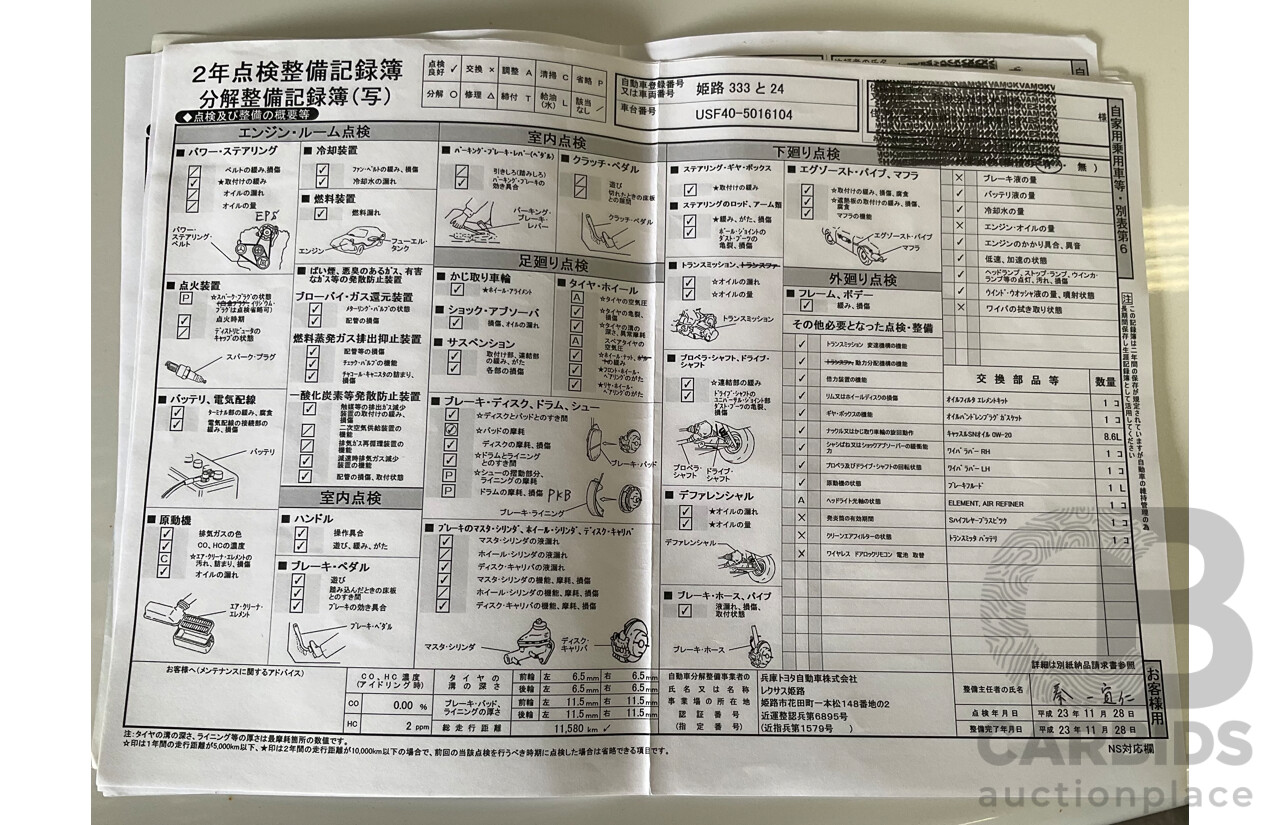 2年点検整備記録簿
分解整備記録簿(写)
◆点検及び整備の概要等
点検良好 ✓ 交換 × 調整 A 清掃 C 省略 P
分解 O 修理 △ 締付 T 給油(水) L 該当なし ／
自動車登録番号又は車両番号 姫路 333 と 24
車台番号 USF40-5016104
様
自家用乗用車等・別表第6
エンジン・ルーム点検
■ パワー・ステアリング
ベルトの緩み、損傷
★取付けの緩み
オイルの漏れ
オイルの量
EPS
パワー・ステアリング・ベルト
■ 点火装置
P ☆スパーク・プラグの状態
(白金プラグ、イリジウム・プラグは点検省略可)
✓ 点火時期
ディストリビュータのキャップの状態
スパーク・プラグ
■ バッテリ、電気配線
✓ ターミナル部の緩み、腐食
✓ 電気配線の接続部の緩み、損傷
バッテリ
■ 原動機
✓ 排気ガスの色
✓ CO、HCの濃度
C ☆エア・クリーナ・エレメントの汚れ、詰まり、損傷
✓ オイルの漏れ
エア・クリーナ・エレメント
■ 冷却装置
✓ ファン・ベルトの緩み、損傷
✓ 冷却水の漏れ
■ 燃料装置
✓ 燃料漏れ
エンジン
フューエル・タンク
■ ばい煙、悪臭のあるガス、有害なガス等の発散防止装置
ブローバイ・ガス還元装置
✓ メターリング・バルブの状態
✓ 配管の損傷
燃料蒸発ガス排出抑止装置
✓ 配管等の損傷
✓ チェック・バルブの機能
✓ チャコール・キャニスタの詰まり、損傷
一酸化炭素等発散防止装置
✓ 触媒等の排出ガス減少装置の取付けの緩み、損傷
二次空気供給装置の機能
排気ガス再循環装置の機能
✓ 減速時排気ガス減少装置の機能
✓ 配管の損傷、取付状態
室内点検
■ ハンドル
✓ 操作具合
✓ 遊び、緩み、がた
■ ブレーキ・ペダル
✓ 遊び
✓ 踏み込んだときの床板とのすき間
✓ ブレーキの効き具合
ブレーキ・ペダル
室内点検
■ パーキング・ブレーキ・レバー(ペダル)
引きしろ(踏みしろ)
✓ パーキング・ブレーキの効き具合
パーキング・ブレーキ・レバー
■ クラッチ・ペダル
遊び
切れたときの床板との隙間
クラッチ・ペダル
足廻り点検
■ かじ取り車輪
✓ ★ホイール・アライメント
■ ショック・アブソーバ
✓ 損傷、オイルの漏れ
■ サスペンション
✓ 取付け部、連結部の緩み、がた
✓ 各部の損傷
■ タイヤ・ホイール
A ☆タイヤの空気圧
✓ ☆タイヤの亀裂、損傷
✓ ☆タイヤの溝の深さ、異常摩耗
A スペアタイヤの空気圧
✓ ☆ホイール・ナット、ボルトの緩み
✓ ★フロント・ホイール・ベアリングのがた
✓ ★リヤ・ホイール・ベアリングのがた
■ ブレーキ・ディスク、ドラム、シュー
✓ ☆ディスクとパッドとのすき間
☆パッドの摩耗
✓ ディスクの摩耗、損傷
✓ ☆ドラムとライニングとのすき間
P ☆シューの摺動部分、ライニングの摩耗
P ドラムの摩耗、損傷
PKB
ブレーキ・パッド
ブレーキ・ライニング
■ ブレーキのマスタ・シリンダ、ホイール・シリンダ、ディスク・キャリパ
✓ マスタ・シリンダの液漏れ
ホイール・シリンダの液漏れ
✓ ディスク・キャリパの液漏れ
✓ マスタ・シリンダの機能、摩耗、損傷
ホイール・シリンダの機能、摩耗、損傷
✓ ディスク・キャリパの機能、摩耗、損傷
マスタ・シリンダ
ディスク・キャリパ
下廻り点検
■ ステアリング・ギヤ・ボックス
✓ ★取付けの緩み
■ ステアリングのロッド、アーム類
✓ ★緩み、がた、損傷
✓ ボール・ジョイントのダスト・ブーツの亀裂、損傷
■ トランスミッション、トランスファ
✓ ☆オイルの漏れ
✓ ☆オイルの量
トランスミッション
■ プロペラ・シャフト、ドライブ・シャフト
✓ ☆連結部の緩み
✓ ドライブ・シャフトのユニバーサル・ジョイント部ダスト・ブーツの亀裂、損傷
プロペラ・シャフト
ドライブ・シャフト
■ デファレンシャル
✓ ★オイルの漏れ
✓ ★オイルの量
デファレンシャル
■ ブレーキ・ホース、パイプ
✓ 液漏れ、損傷、取付状態
ブレーキ・ホース
■ エグゾースト・パイプ、マフラ
✓ ★取付けの緩み、損傷、腐食
✓ ☆遮熱板の取付けの緩み、損傷、腐食
✓ マフラの機能
エグゾースト・パイプ
マフラ
外廻り点検
■ フレーム、ボデー
✓ 緩み、損傷
その他必要となった点検・整備
✓ トランスミッション 変速機構の機能
✓ トランスファ 動力分配機構の機能
✓ 倍力装置の機能
✓ リム又はホイールディスクの損傷
✓ ギヤ・ボックスの機能
✓ ナックル又はかじ取り車輪の旋回動作
✓ シャシばね又はショックアブソーバーの緩衝能力
✓ プロペラ及びドライブ・シャフトの回転状態
✓ 原動機の状態
A ヘッドライト光軸の状態
× 発炎筒の有効期間
× クリーンエアフィルターの状態
× ワイヤレス ドアロックリモコン 電池 取替
無)
× ブレーキ液の量
✓ バッテリ液の量
✓ 冷却水の量
× エンジン・オイルの量
✓ エンジンのかかり具合、異音
✓ 低速、加速の状態
✓ ヘッドランプ、ストップ・ランプ、ウインカ・ランプ等の点灯、汚れ、損傷
✓ ウインド・ウオッシャ液の量、噴射状態
× ワイパの拭き取り状態
交換部品等 数量
オイルフィルタ エレメントキット 1 コ
オイルパンドレンプラグ ガスケット 1 コ
キャッスルSNオイル 0W-20 8.6L
ワイパラバー RH 1 コ
ワイパラバー LH 1 コ
ブレーキフルード 1 L
ELEMENT, AIR REFINER 1 コ
Sハイフレヤープラスピック 1 コ
トランスミッタ バッテリ 1 コ
詳細は別紙納品請求書参照
注 この記録簿は二年間の保存が規定されていますが自動車の維持管理の為長期間保存し生涯記録簿として活用してください
お客様へ(メンテナンスに関するアドバイス)
CO、HC濃度(アイドリング時)
CO 0.00 %
HC 2 ppm
タイヤの溝の深さ 前輪 左 6.5mm 右 6.5mm
後輪 左 6.5mm 右 6.5mm
ブレーキ・パッド、ライニングの厚さ 前輪 左 11.5mm 右 11.5mm
後輪 左 11.5mm 右 11.5mm
総走行距離 11,580 km ✓
自動車分解整備事業者の氏名又は名称 事業場の所在地 認証番号(指定番号)
兵庫トヨタ自動車株式会社
レクサス姫路
姫路市花田町一本松148番地の2
近運整認兵第6895号
(近指兵第1579号 )
整備主任者の氏名
点検年月日 平成 23 年 11 月 28 日
整備完了年月日 平成 23 年 11 月 28 日
お客様用
注:タイヤの溝の深さ、ライニング等の厚さは最摩耗箇所の数値です。
☆印は1年間の走行距離が5,000km以下、★印は2年間の走行距離が10,000km以下の場合で、前回の当該点検を行うべき時期に点検した場合は省略できる項目です。
NS対応欄
CARBIDS
auctionplace